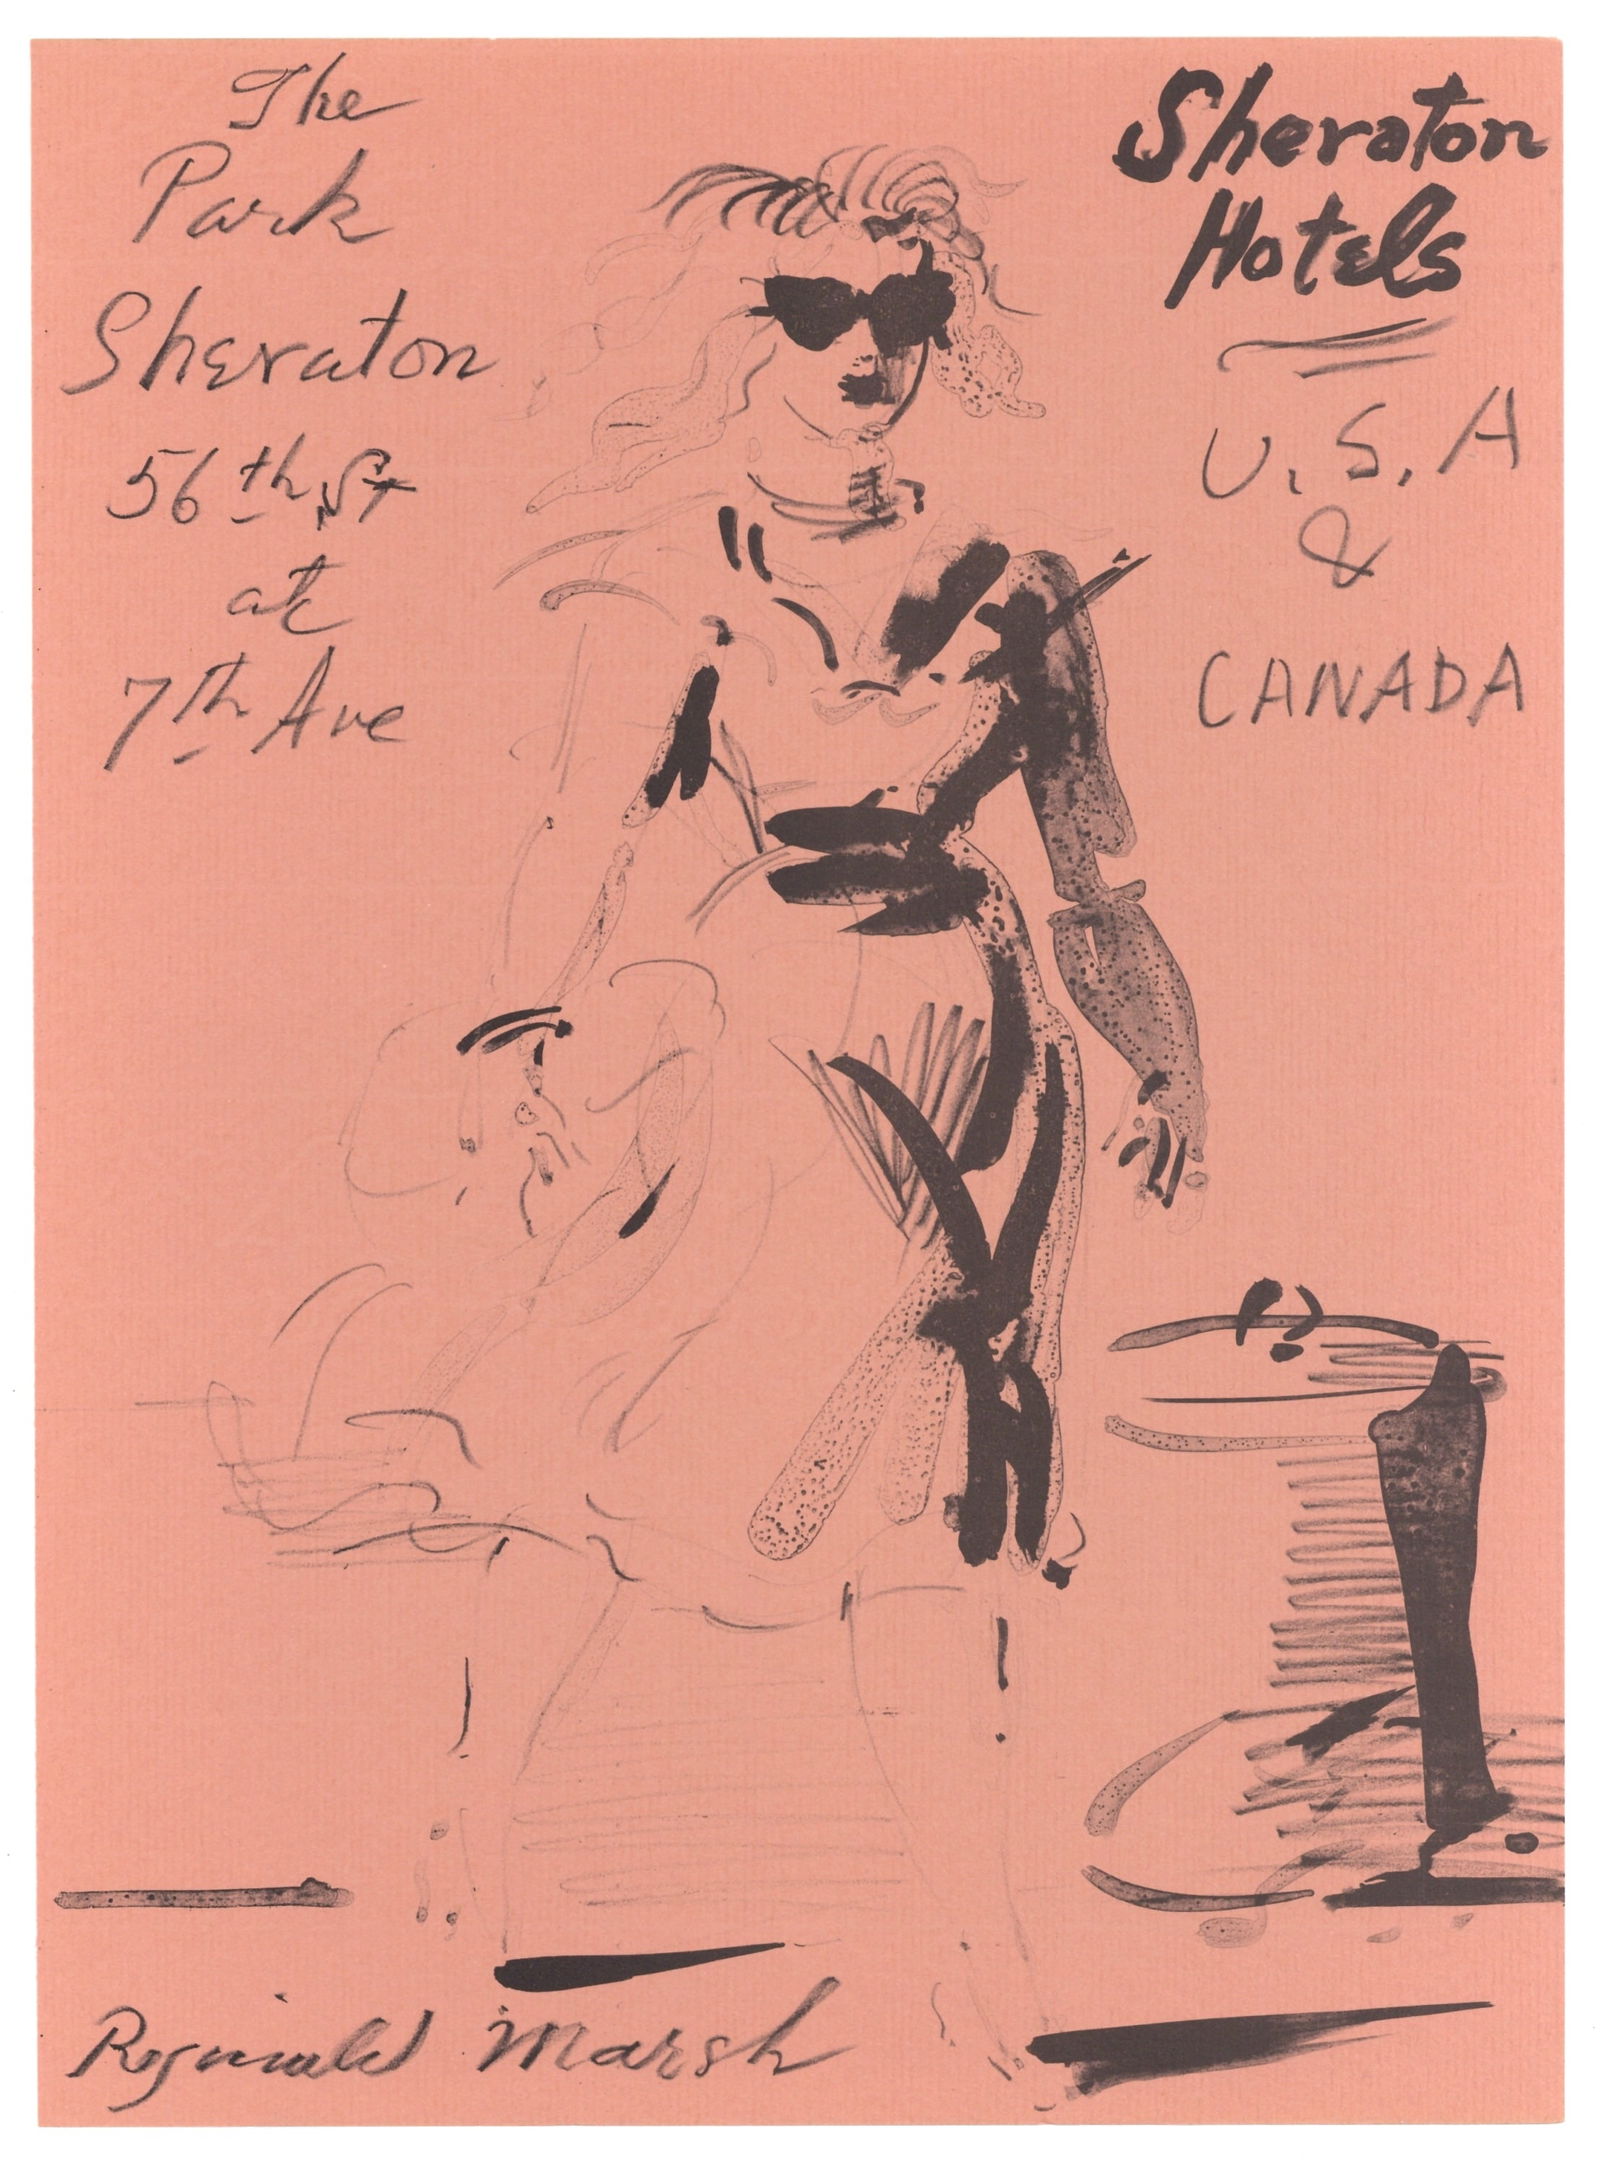 The
Park
Sheraton
56th St
at
7th Ave
Sheraton
Hotels
U.S.A
&
CANADA
Reginald Marsh